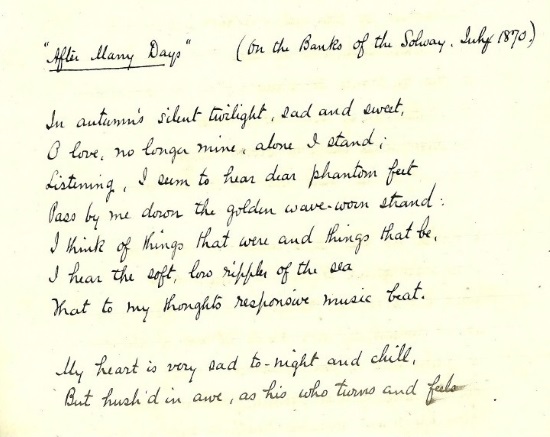 "After Many Days" (On the Banks of the Solway. July 1870.)
In autumn's silent twilight, sad and sweet,
O love, no longer mine, alone I stand;
Listening, I seem to hear dear phantom feet
Pass by me down the golden wave-worn strand:
I think of things that were and things that be,
I hear the soft, low ripples of the sea
That to my thoughts responsive music beat.
My heart is very sad to-night and chill,
But hush'd in awe, as his who turns and feels